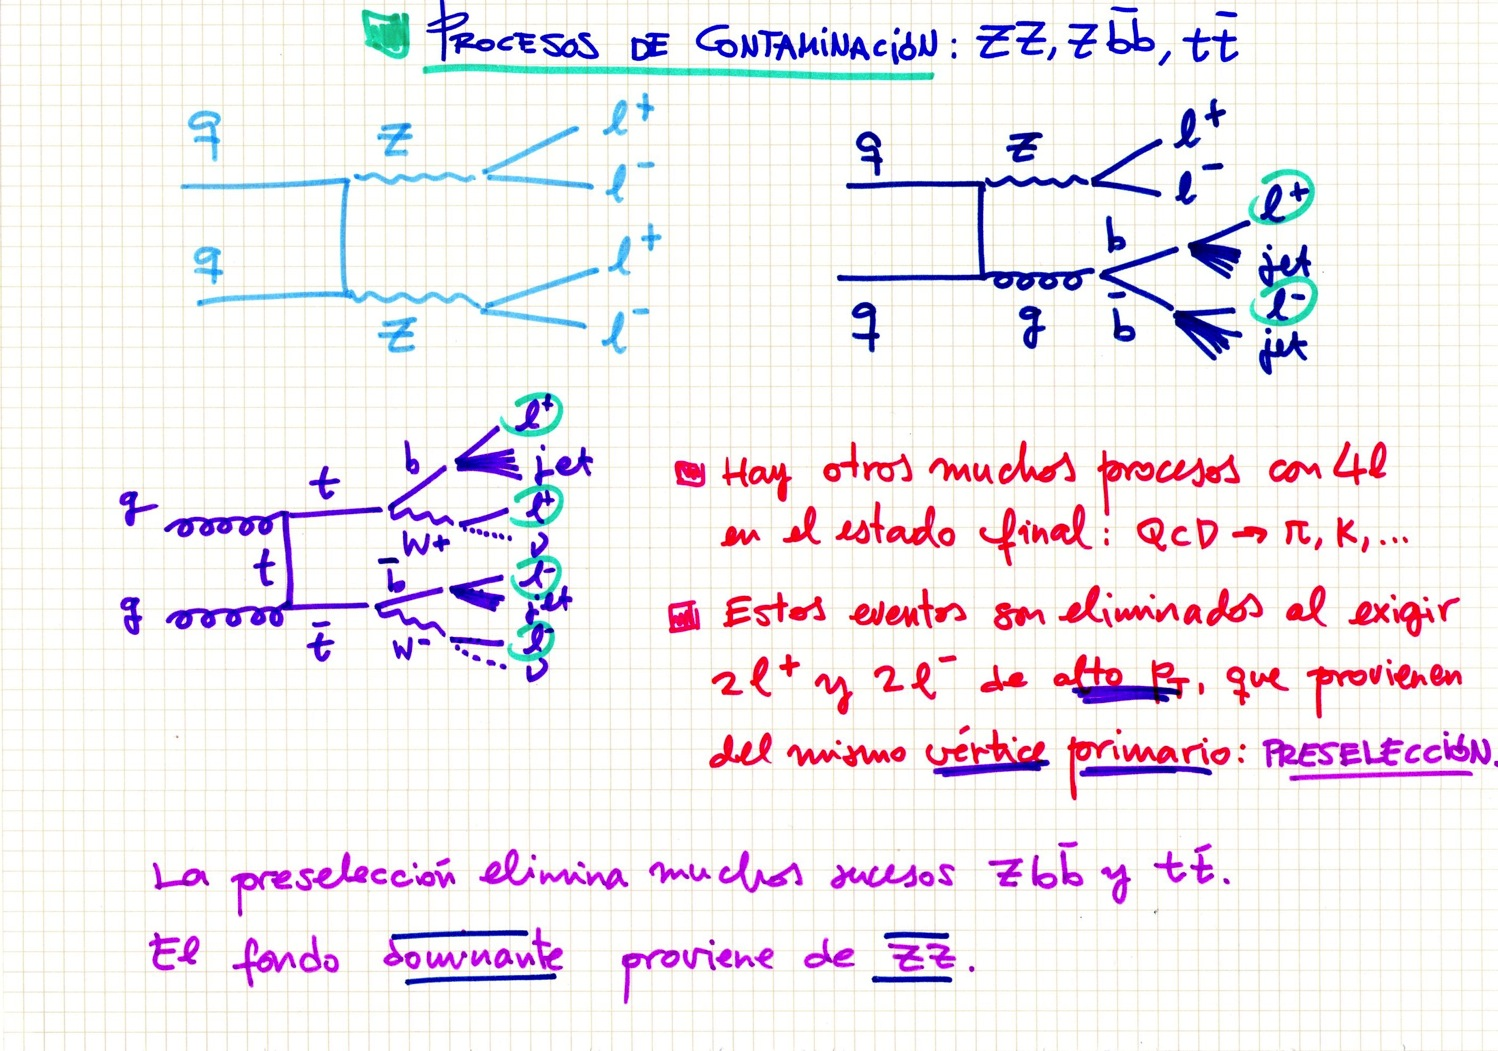 PROCESOS DE CONTAMINACIÓN: ZZ, Zb̄b, tt̄
q
Z
l⁺
l⁻
q
Z
l⁺
l⁻
q
Z
l⁺
l⁻
l⁺
b
jet
q
g
b̄
l⁻
jet
l⁺
b
jet
t
g
l⁺
W+
ν
t
b̄
l⁻
g
jet
t̄
W-
l⁻
ν
Hay otros muchos procesos con 4l
en el estado final: QCD → π, K, ...
Estos eventos son eliminados al exigir
2l⁺ y 2l⁻ de alto pT, que provienen
del mismo vértice primario: PRESELECCIÓN.
La preselección elimina muchos sucesos Zbb̄ y tt̄.
El fondo dominante proviene de ZZ.